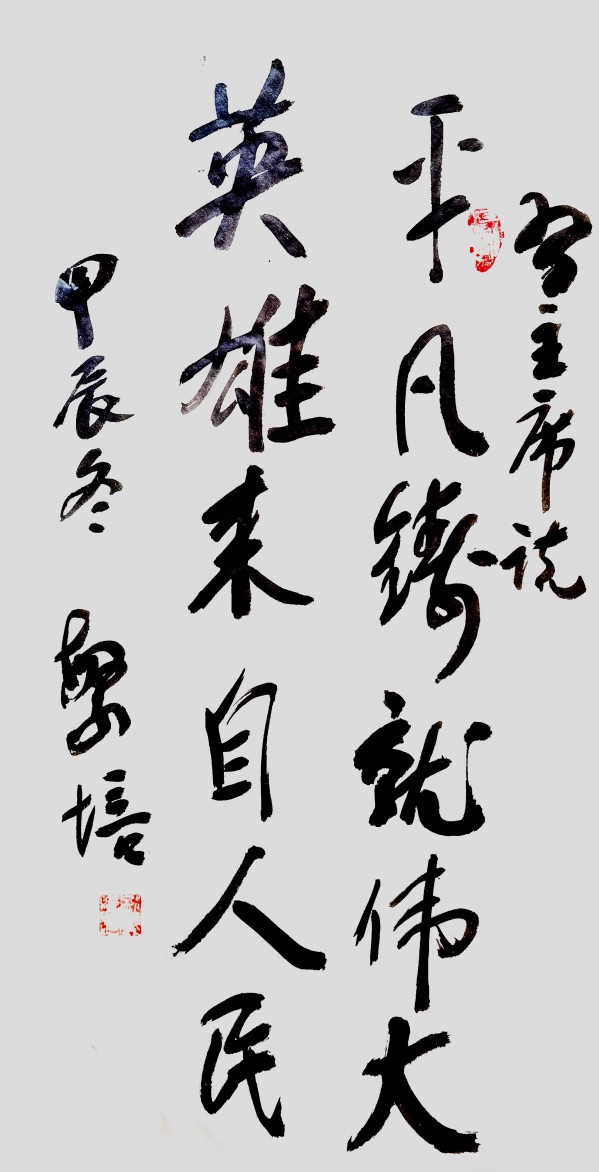 习主席说
平凡铸就伟大
英雄来自人民
甲辰冬 培